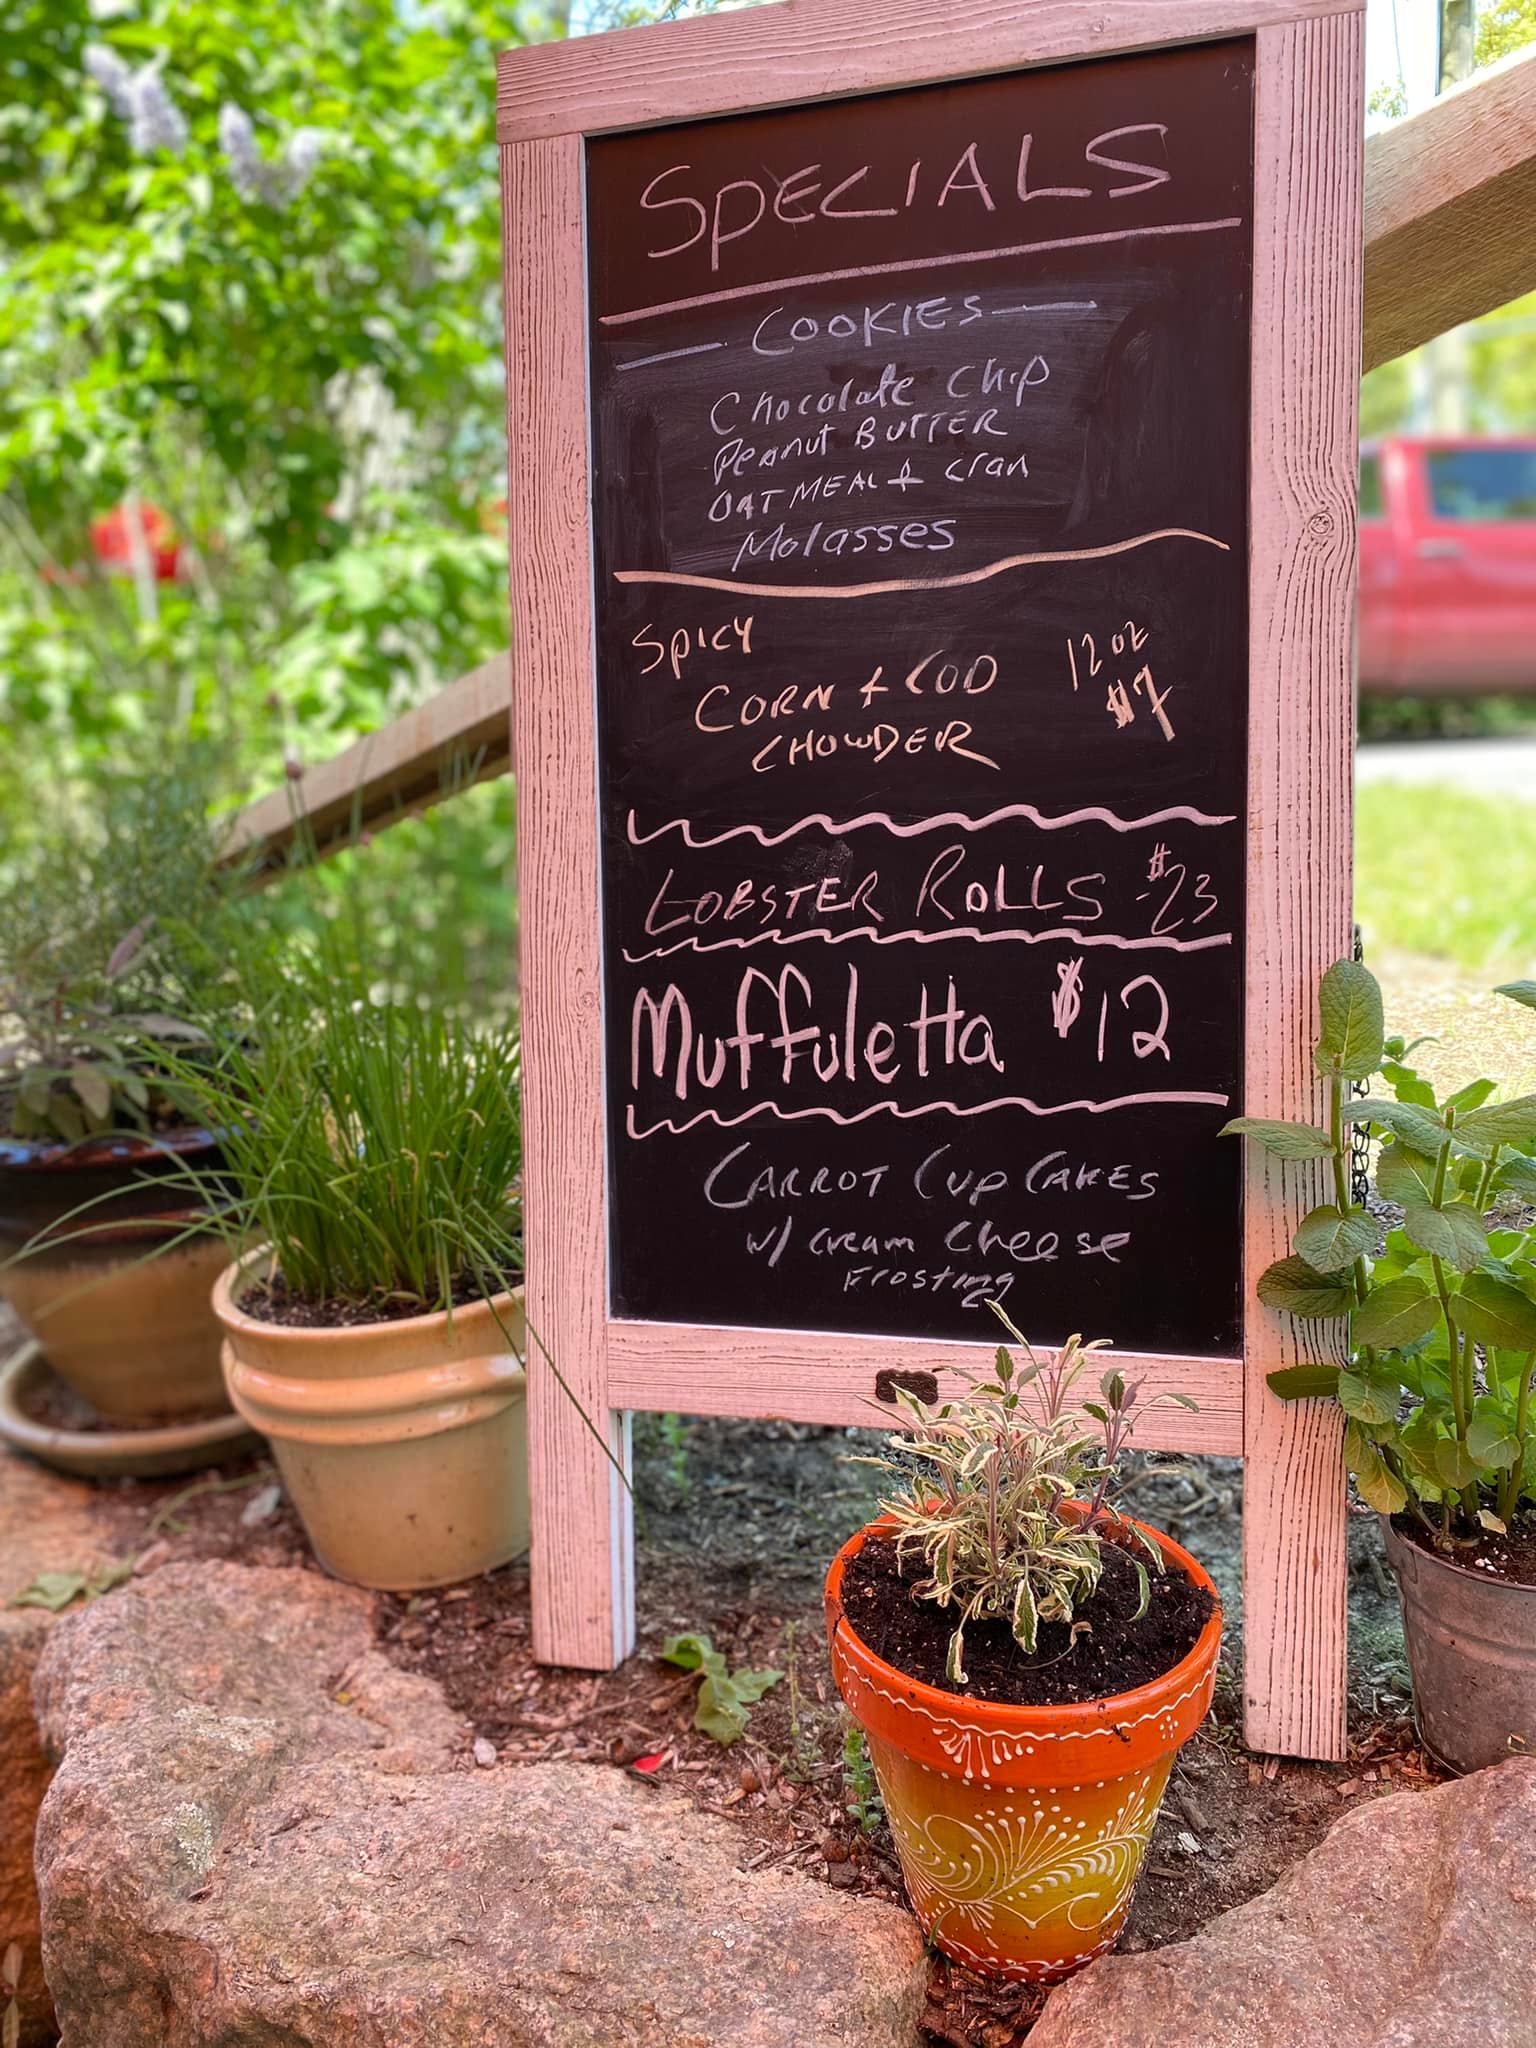 SPECIALS
COOKIES
Chocolate Chip
Peanut BUTTER
OATMEAL + Cran
Molasses
Spicy
CORN + COD
CHOWDER
12 oz
$7
LOBSTER ROLLS $23
Muffuletta $12
CARROT CUP CAKES
w/ cream cheese
Frosting